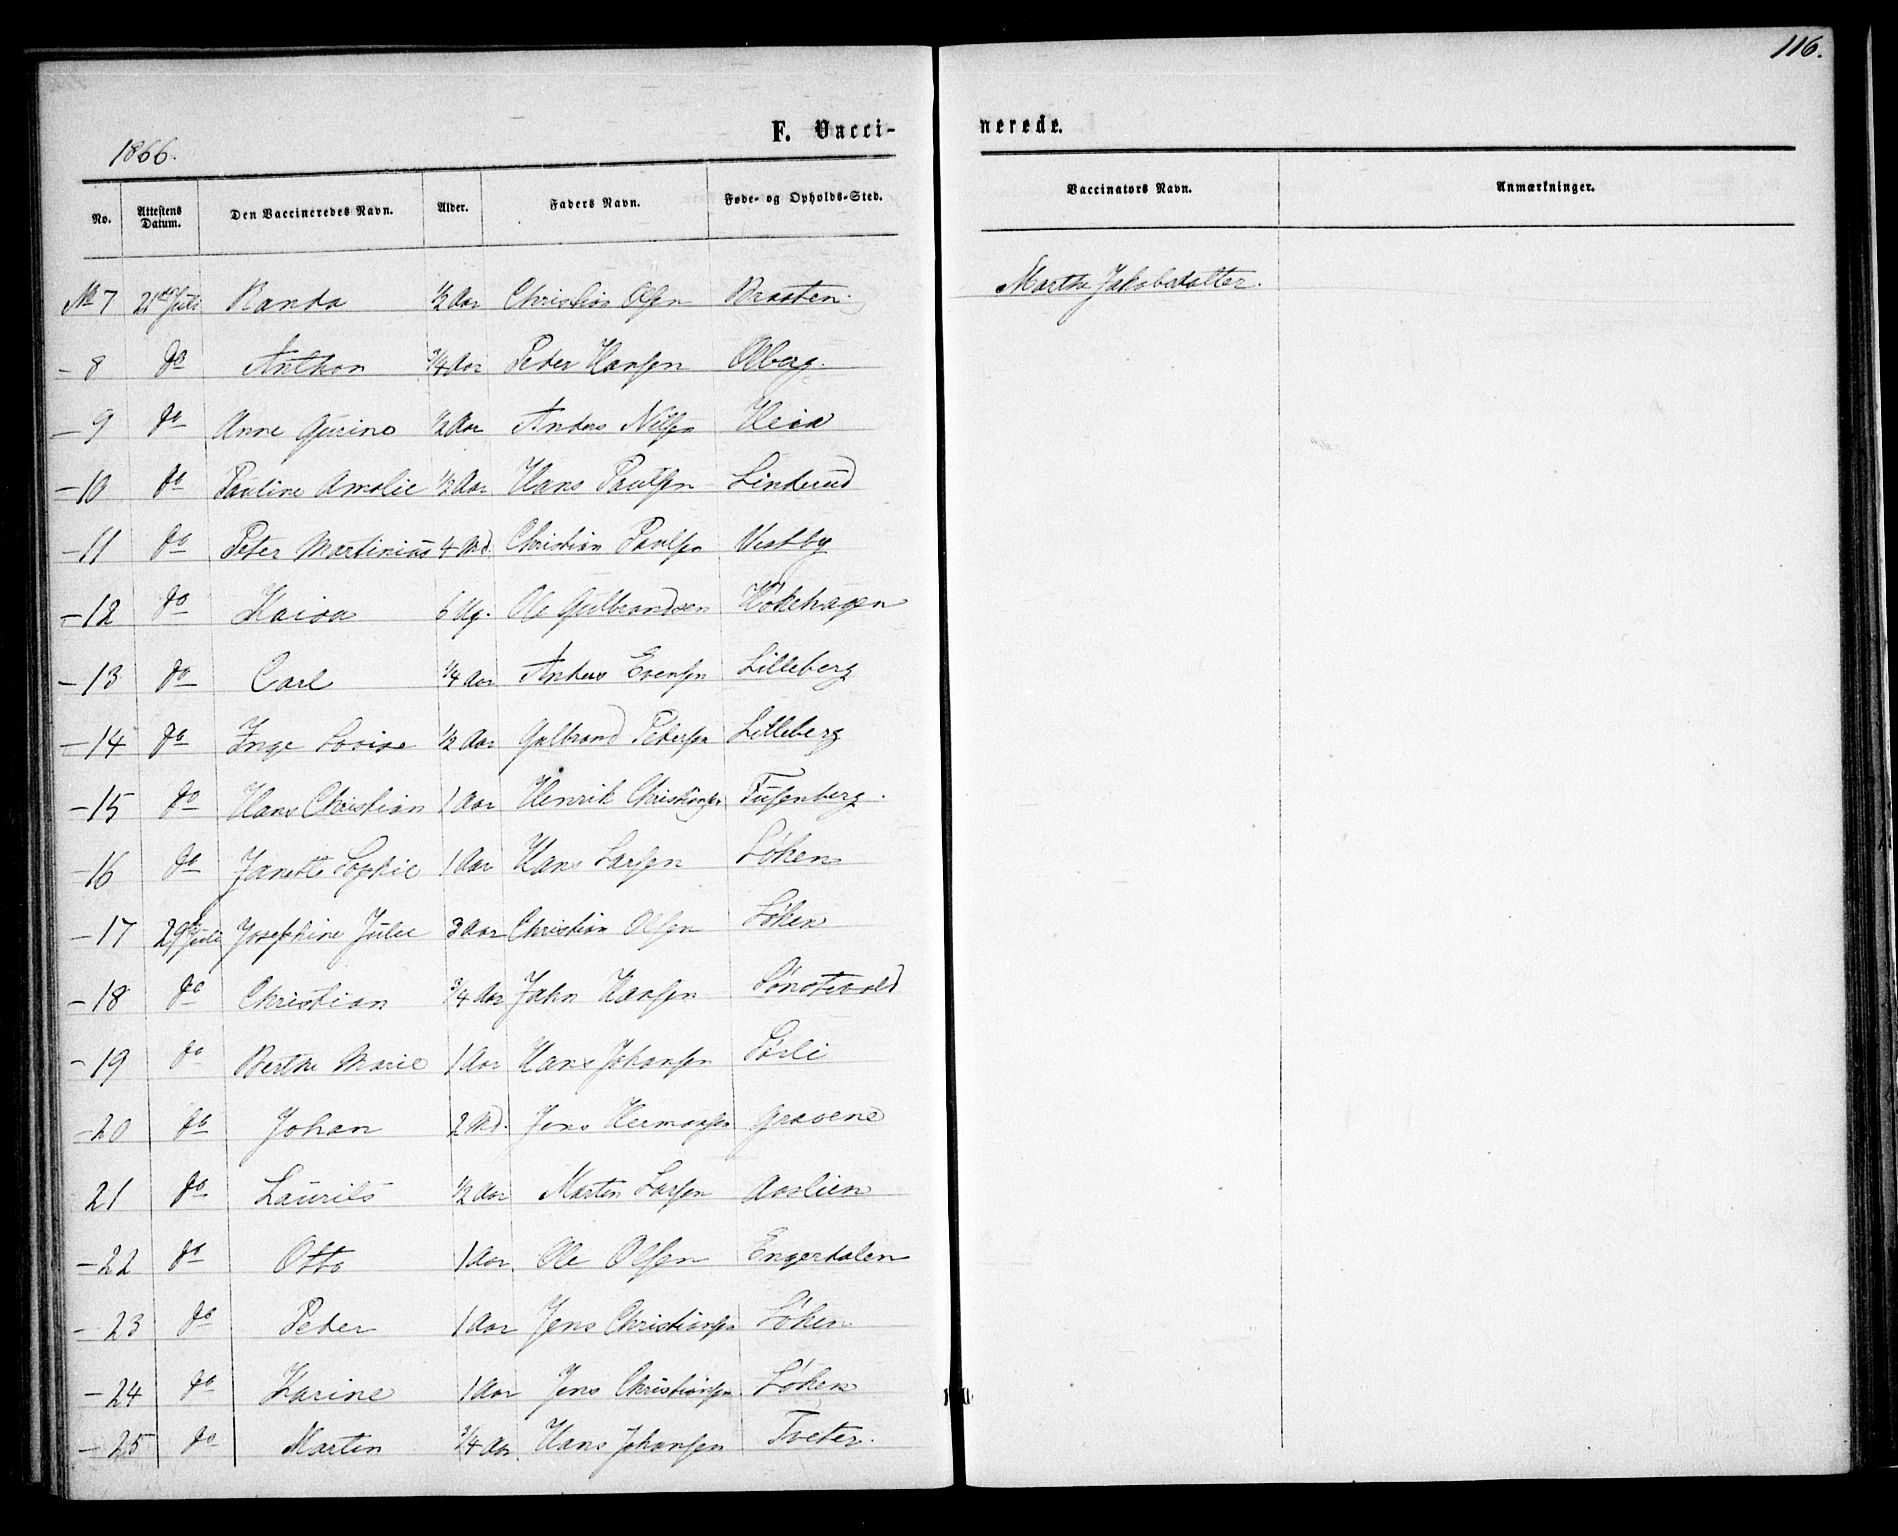 116.
1866.
F. Vacci-
nerede.
No. Attestens Datum. Den Vaccineredes Navn. Alder. Faders Navn. Føde- og Opholds-Sted. Vaccinators Navn. Anmærkninger.
No 7 21de Juli Randa 1/2 Aar Christian Olsen Braaten. Marthe Jakobsdatter.
- 8 do Anthon 3/4 Aar Peder Hansen Olberg.
- 9 do Anne Gurine 1/2 Aar Anders Nilsen Heia
- 10 do Pauline Amalie 1/2 Aar Hans Paulsen Linderud
- 11 do Peter Martinius 4 Md. Christian Paulsen Vestby
- 12 do Kaisa 6 Ug. Ole Gulbrandsen Hokehagen
- 13 do Carl 3/4 Aar Anders Evensen Lilleberg
- 14 do Inge Lovise 1/2 Aar Gulbrand Pedersen Lilleberg
- 15 do Hans Christian 1 Aar Henrik Christiansen Tusenberg.
- 16 do Janette Sophie 1 Aar Hans Larsen Løken
- 17 29de Juli Josephine Julie 3 Aar Christian Olsen Løken
- 18 do Christian 3/4 Aar John Hansen Sønstevold
- 19 do Berthe Marie 1 Aar Hans Johansen Sørli
- 20 do Johan 2 Md. Jens Hermansen Gravene
21 do Laurits 1/2 Aar Martin Larsen Aaslien
- 22 do Otto 1 Aar. Ole Olsen Engerdalen
- 23 do Peder 1 Aar Jens Christiansen Løken
- 24 do Karine 1 Aar Jens Christiansen Løken
- 25 do Martin 3/4 Aar. Hans Johansen Tveter.